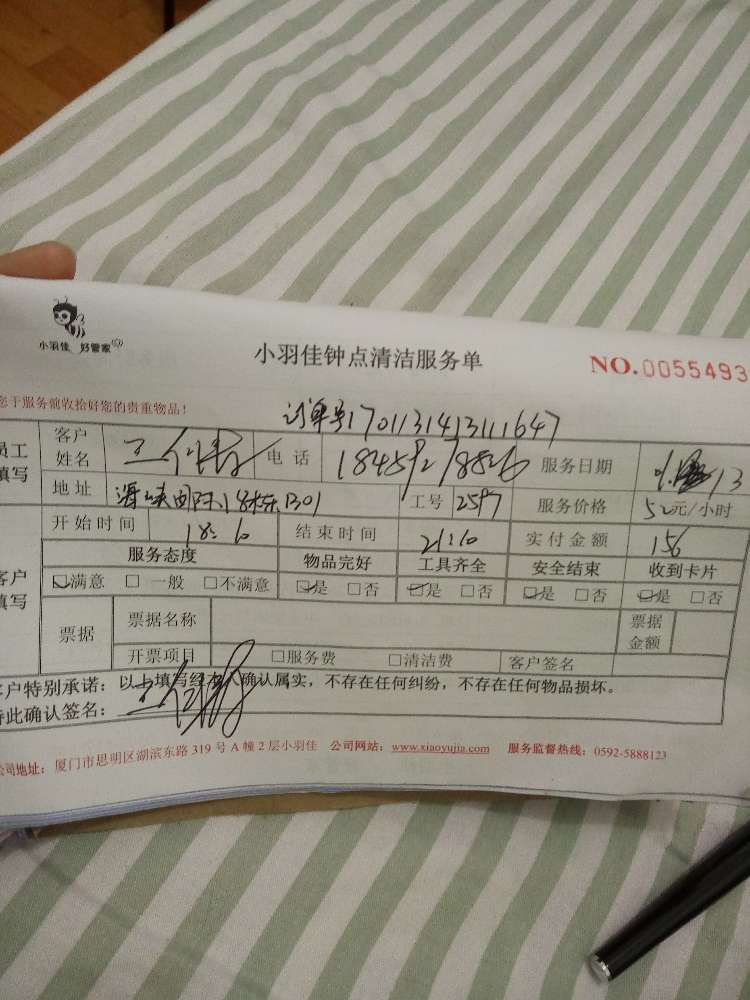 小羽佳 好管家
小羽佳钟点清洁服务单
NO.0055493
您于服务前收拾好您的贵重物品!
订单号1701131413111647
员工填写 客户姓名 电话 服务日期 13
地址 海峡国际18栋1301 工号 2597 服务价格 52元/小时
开始时间 18:10 结束时间 21:10 实付金额 156
客户填写 服务态度 物品完好 工具齐全 安全结束 收到卡片
☑满意 □一般 □不满意 ☑是 □否 ☑是 □否 ☑是 □否 ☑是 □否
票据 票据名称 票据金额
开票项目 □服务费 □清洁费 客户签名
客户特别承诺:以上填写经本人确认属实,不存在任何纠纷,不存在任何物品损坏。
特此确认签名:
公司地址:厦门市思明区湖滨东路319号A幢2层小羽佳 公司网站:www.xiaoyujia.com 服务监督热线:0592-5888123